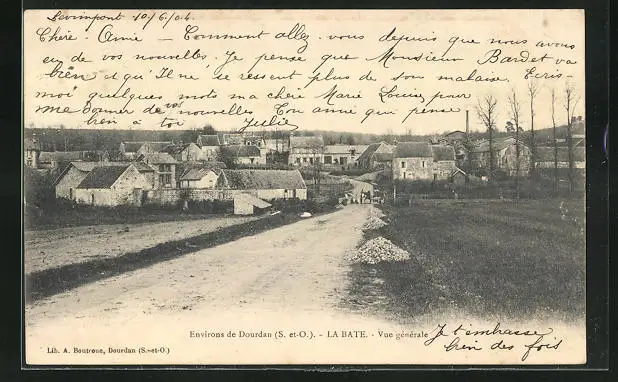 Sevimpont 10/6/04
Chère Amie — Comment allez-vous depuis que nous avons
eu de vos nouvelles. Je pense que Monsieur Bardet va
bien et qu'il ne se ressent plus de son malaise. Ecris-
moi quelques mots ma chère Marie Louise pour
me donner de vos nouvelles Ton amie qui pense
bien à toi Julie
Environs de Dourdan (S. et-O.). - LA BATE. - Vue générale
Je t'embrasse
bien des fois
Lib. A. Boutroue, Dourdan (S.-et-O.)